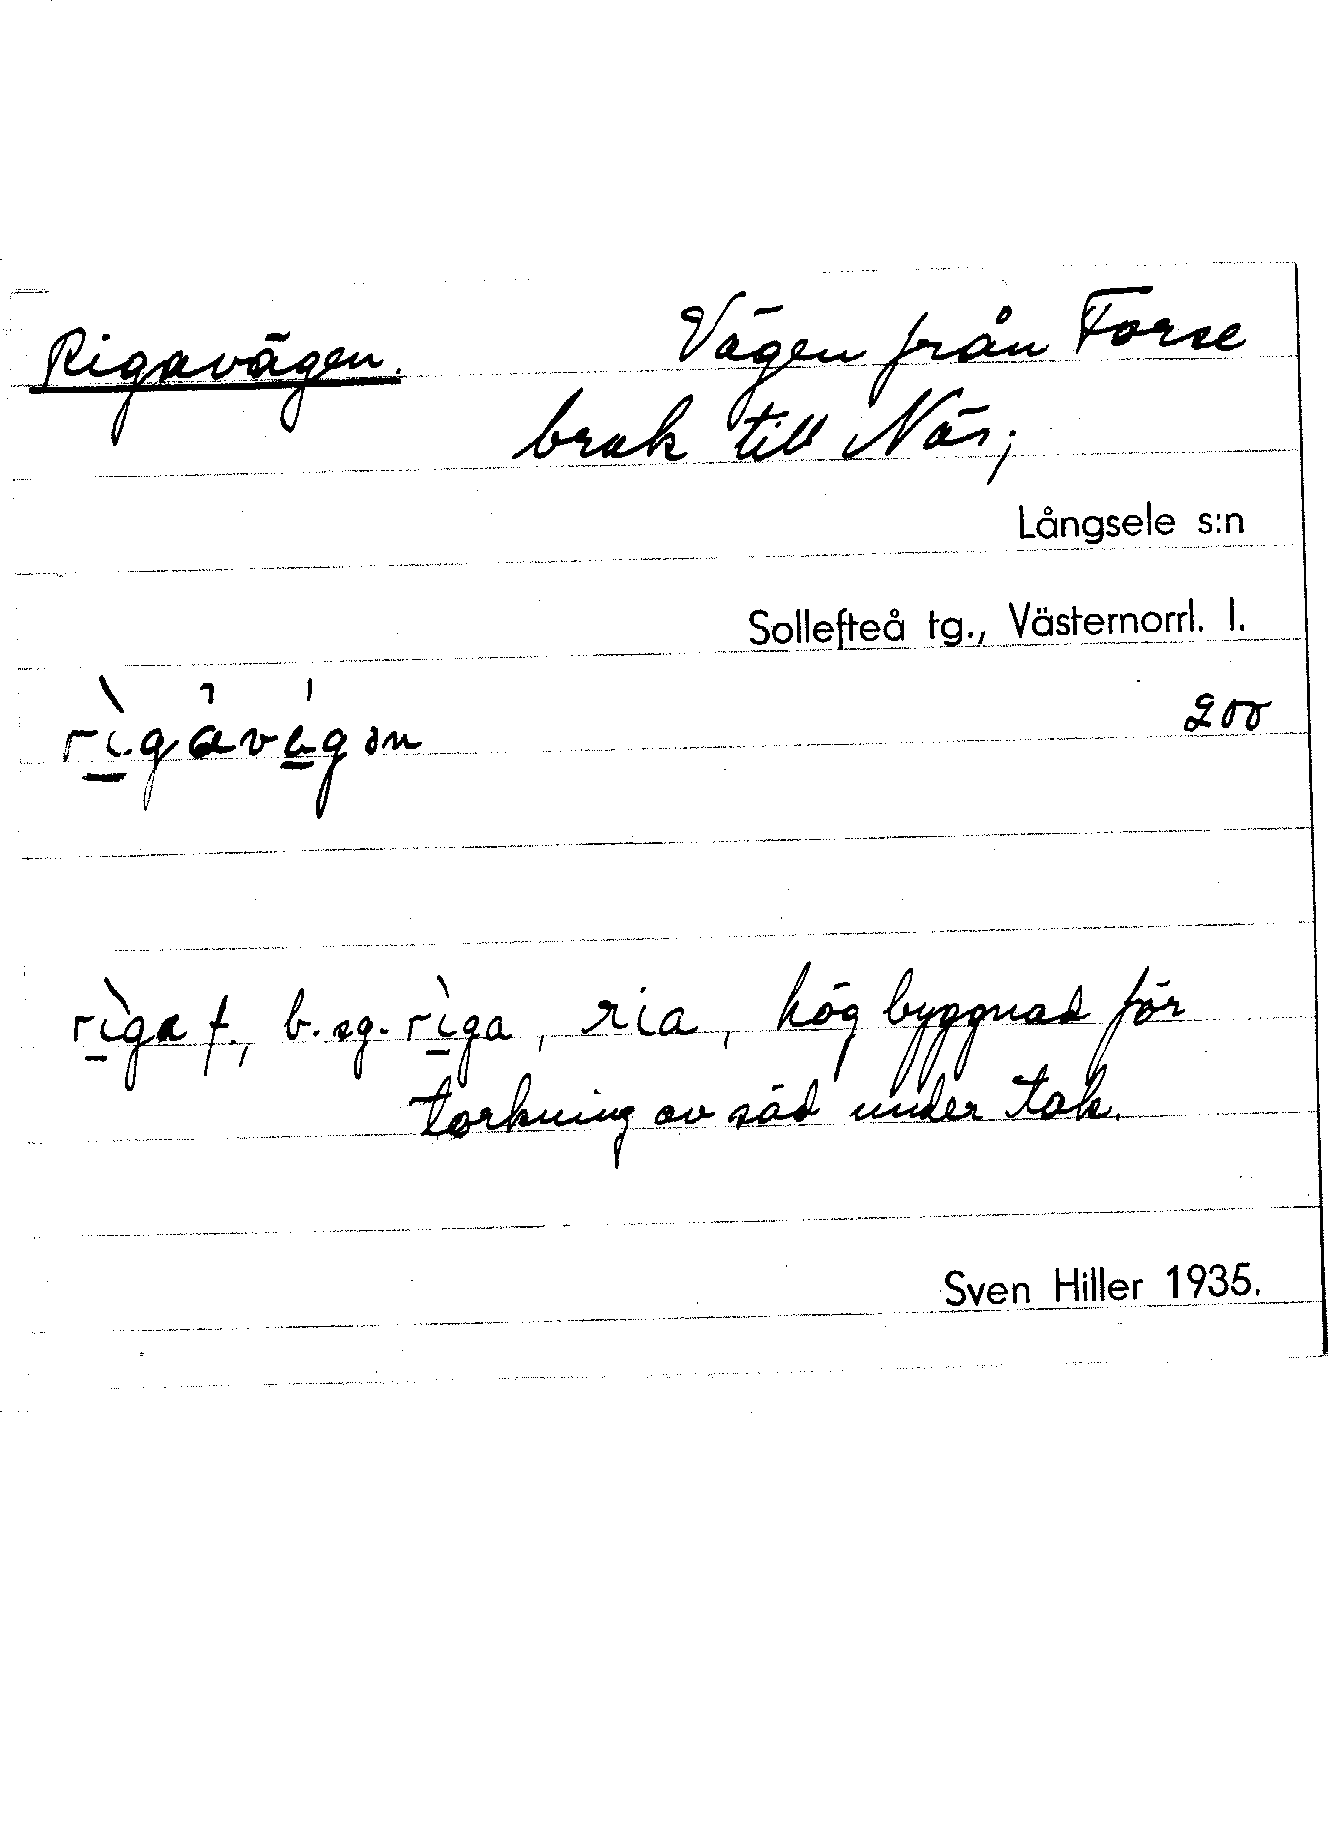 Rigavägen. Vägen från Forse
bruk till Näs;
Långsele s:n
Sollefteå tg., Västernorrl. l.
rìgávágən 200
rìga f., b. sg. rìga, ria, hög byggnad för
torkning av säd under tak.
Sven Hiller 1935.